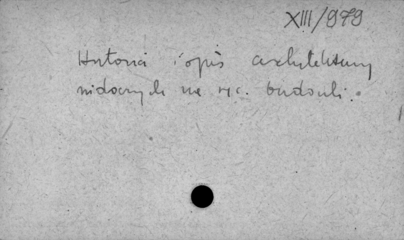 XIII/979
Historia i opis architektury
widocznych na ryc. budowli.